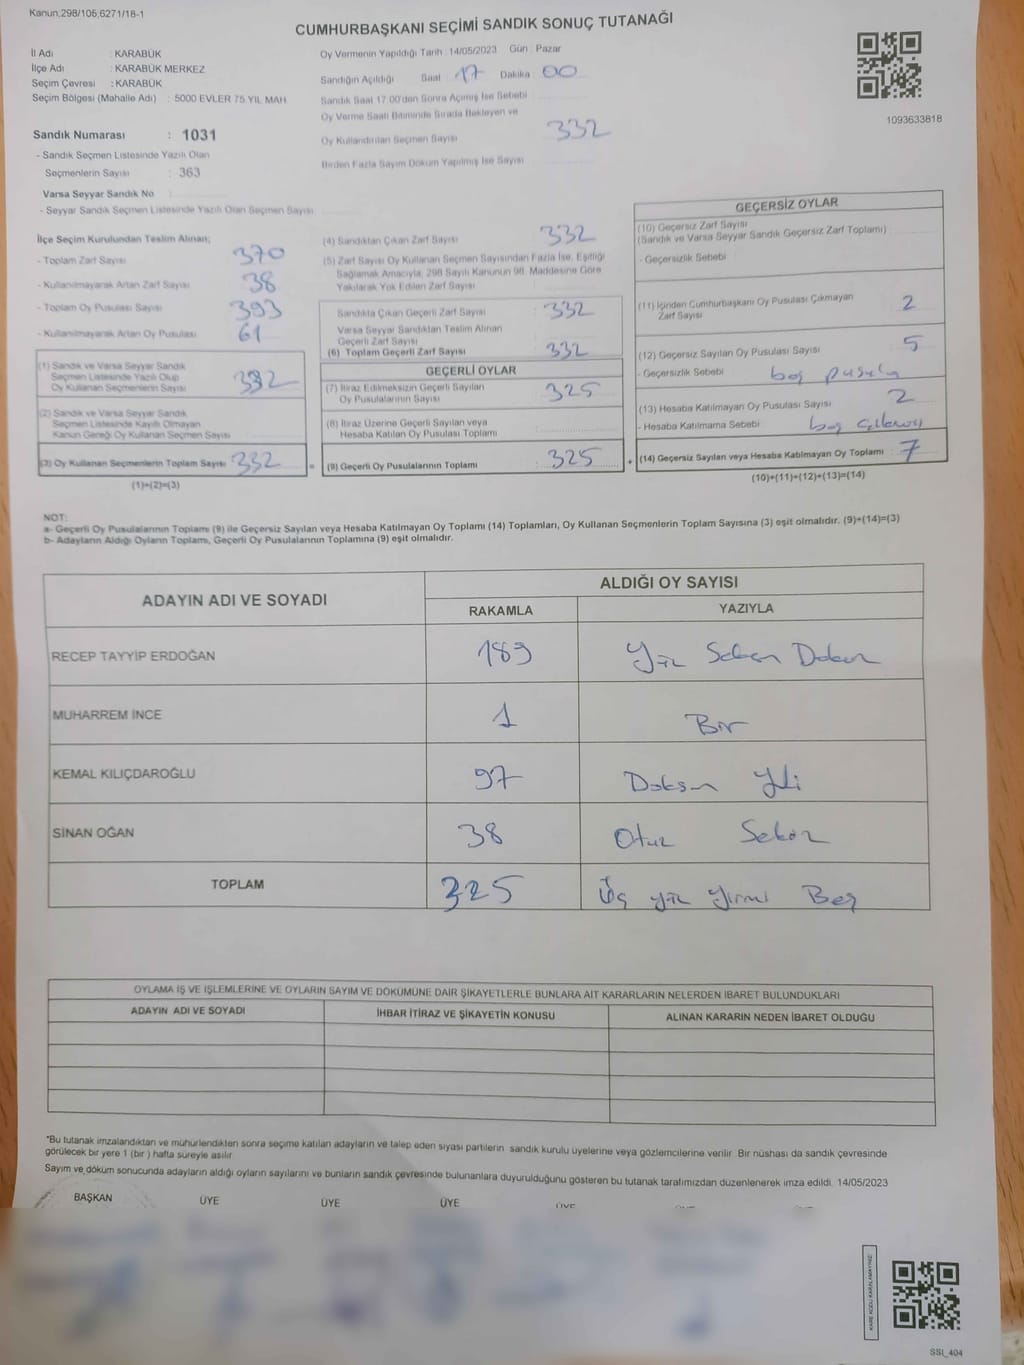 Kanun,298/105,6271/18-1
CUMHURBAŞKANI SEÇİMİ SANDIK SONUÇ TUTANAĞI
İl Adı : KARABÜK
İlçe Adı : KARABÜK MERKEZ
Seçim Çevresi : KARABÜK
Seçim Bölgesi (Mahalle Adı) : 5000 EVLER 75 YIL MAH
Oy Vermenin Yapıldığı Tarih : 14/05/2023 Gün : Pazar
Sandığın Açıldığı Saat 17 Dakika 00
Sandık Saat 17:00'den Sonra Açılmış İse Sebebi
Oy Verme Saati Bitiminde Sırada Bekleyen ve
Oy Kullandırılan Seçmen Sayısı 332
Birden Fazla Sayım Döküm Yapılmış İse Sayısı
1093633818
Sandık Numarası : 1031
- Sandık Seçmen Listesinde Yazılı Olan
Seçmenlerin Sayısı : 363
Varsa Seyyar Sandık No :
- Seyyar Sandık Seçmen Listesinde Yazılı Olan Seçmen Sayısı
İlçe Seçim Kurulundan Teslim Alınan;
- Toplam Zarf Sayısı 370
- Kullanılmayarak Artan Zarf Sayısı 38
- Toplam Oy Pusulası Sayısı 393
- Kullanılmayarak Artan Oy Pusulası 61
(1) Sandık ve Varsa Seyyar Sandık
Seçmen Listesinde Yazılı Olup
Oy Kullanan Seçmenlerin Sayısı 332
(2) Sandık ve Varsa Seyyar Sandık
Seçmen Listesinde Kayıtlı Olmayan
Kanun Gereği Oy Kullanan Seçmen Sayısı
(3) Oy Kullanan Seçmenlerin Toplam Sayısı 332 =
(1)+(2)=(3)
(4) Sandıktan Çıkan Zarf Sayısı 332
(5) Zarf Sayısı Oy Kullanan Seçmen Sayısından Fazla İse, Eşitliği
Sağlamak Amacıyla, 298 Sayılı Kanunun 98. Maddesine Göre
Yakılarak Yok Edilen Zarf Sayısı
Sandıkta Çıkan Geçerli Zarf Sayısı : 332
Varsa Seyyar Sandıktan Teslim Alınan
Geçerli Zarf Sayısı
(6) Toplam Geçerli Zarf Sayısı 332
GEÇERLİ OYLAR
(7) İtiraz Edilmeksizin Geçerli Sayılan
Oy Pusulalarının Sayısı : 325
(8) İtiraz Üzerine Geçerli Sayılan veya
Hesaba Katılan Oy Pusulası Toplamı
(9) Geçerli Oy Pusulalarının Toplamı : 325 +
GEÇERSİZ OYLAR
(10) Geçersiz Zarf Sayısı
(Sandık ve Varsa Seyyar Sandık Geçersiz Zarf Toplamı)
- Geçersizlik Sebebi
(11) İçinden Cumhurbaşkanı Oy Pusulası Çıkmayan
Zarf Sayısı 2
(12) Geçersiz Sayılan Oy Pusulası Sayısı 5
- Geçersizlik Sebebi boş pusula
(13) Hesaba Katılmayan Oy Pusulası Sayısı 2
- Hesaba Katılmama Sebebi boş
(14) Geçersiz Sayılan veya Hesaba Katılmayan Oy Toplamı : 7
(10)+(11)+(12)+(13)=(14)
NOT:
a- Geçerli Oy Pusulalarının Toplamı (9) ile Geçersiz Sayılan veya Hesaba Katılmayan Oy Toplamı (14) Toplamları, Oy Kullanan Seçmenlerin Toplam Sayısına (3) eşit olmalıdır. (9)+(14)=(3)
b- Adayların Aldığı Oyların Toplamı, Geçerli Oy Pusulalarının Toplamına (9) eşit olmalıdır.
ADAYIN ADI VE SOYADI
ALDIĞI OY SAYISI
RAKAMLA YAZIYLA
RECEP TAYYİP ERDOĞAN 189 Yüz Seksen Dokuz
MUHARREM İNCE 1 Bir
KEMAL KILIÇDAROĞLU 97 Doksan Yedi
SİNAN OĞAN 38 Otuz Sekiz
TOPLAM 325 Üç yüz Yirmi Beş
OYLAMA İŞ VE İŞLEMLERİNE VE OYLARIN SAYIM VE DÖKÜMÜNE DAİR ŞİKAYETLERLE BUNLARA AİT KARARLARIN NELERDEN İBARET BULUNDUKLARI
ADAYIN ADI VE SOYADI İHBAR İTİRAZ VE ŞİKAYETİN KONUSU ALINAN KARARIN NEDEN İBARET OLDUĞU
*Bu tutanak imzalandıktan ve mühürlendikten sonra seçime katılan adayların ve talep eden siyasi partilerin sandık kurulu üyelerine veya gözlemcilerine verilir. Bir nüshası da sandık çevresinde
görülecek bir yere 1 (bir ) hafta süreyle asılır.
Sayım ve döküm sonucunda adayların aldığı oyların sayılarını ve bunların sandık çevresinde bulunanlara duyurulduğunu gösteren bu tutanak tarafımızdan düzenlenerek imza edildi. 14/05/2023
BAŞKAN ÜYE ÜYE ÜYE ÜYE
KARE KODU KARALAMAYINIZ!
SSI_404